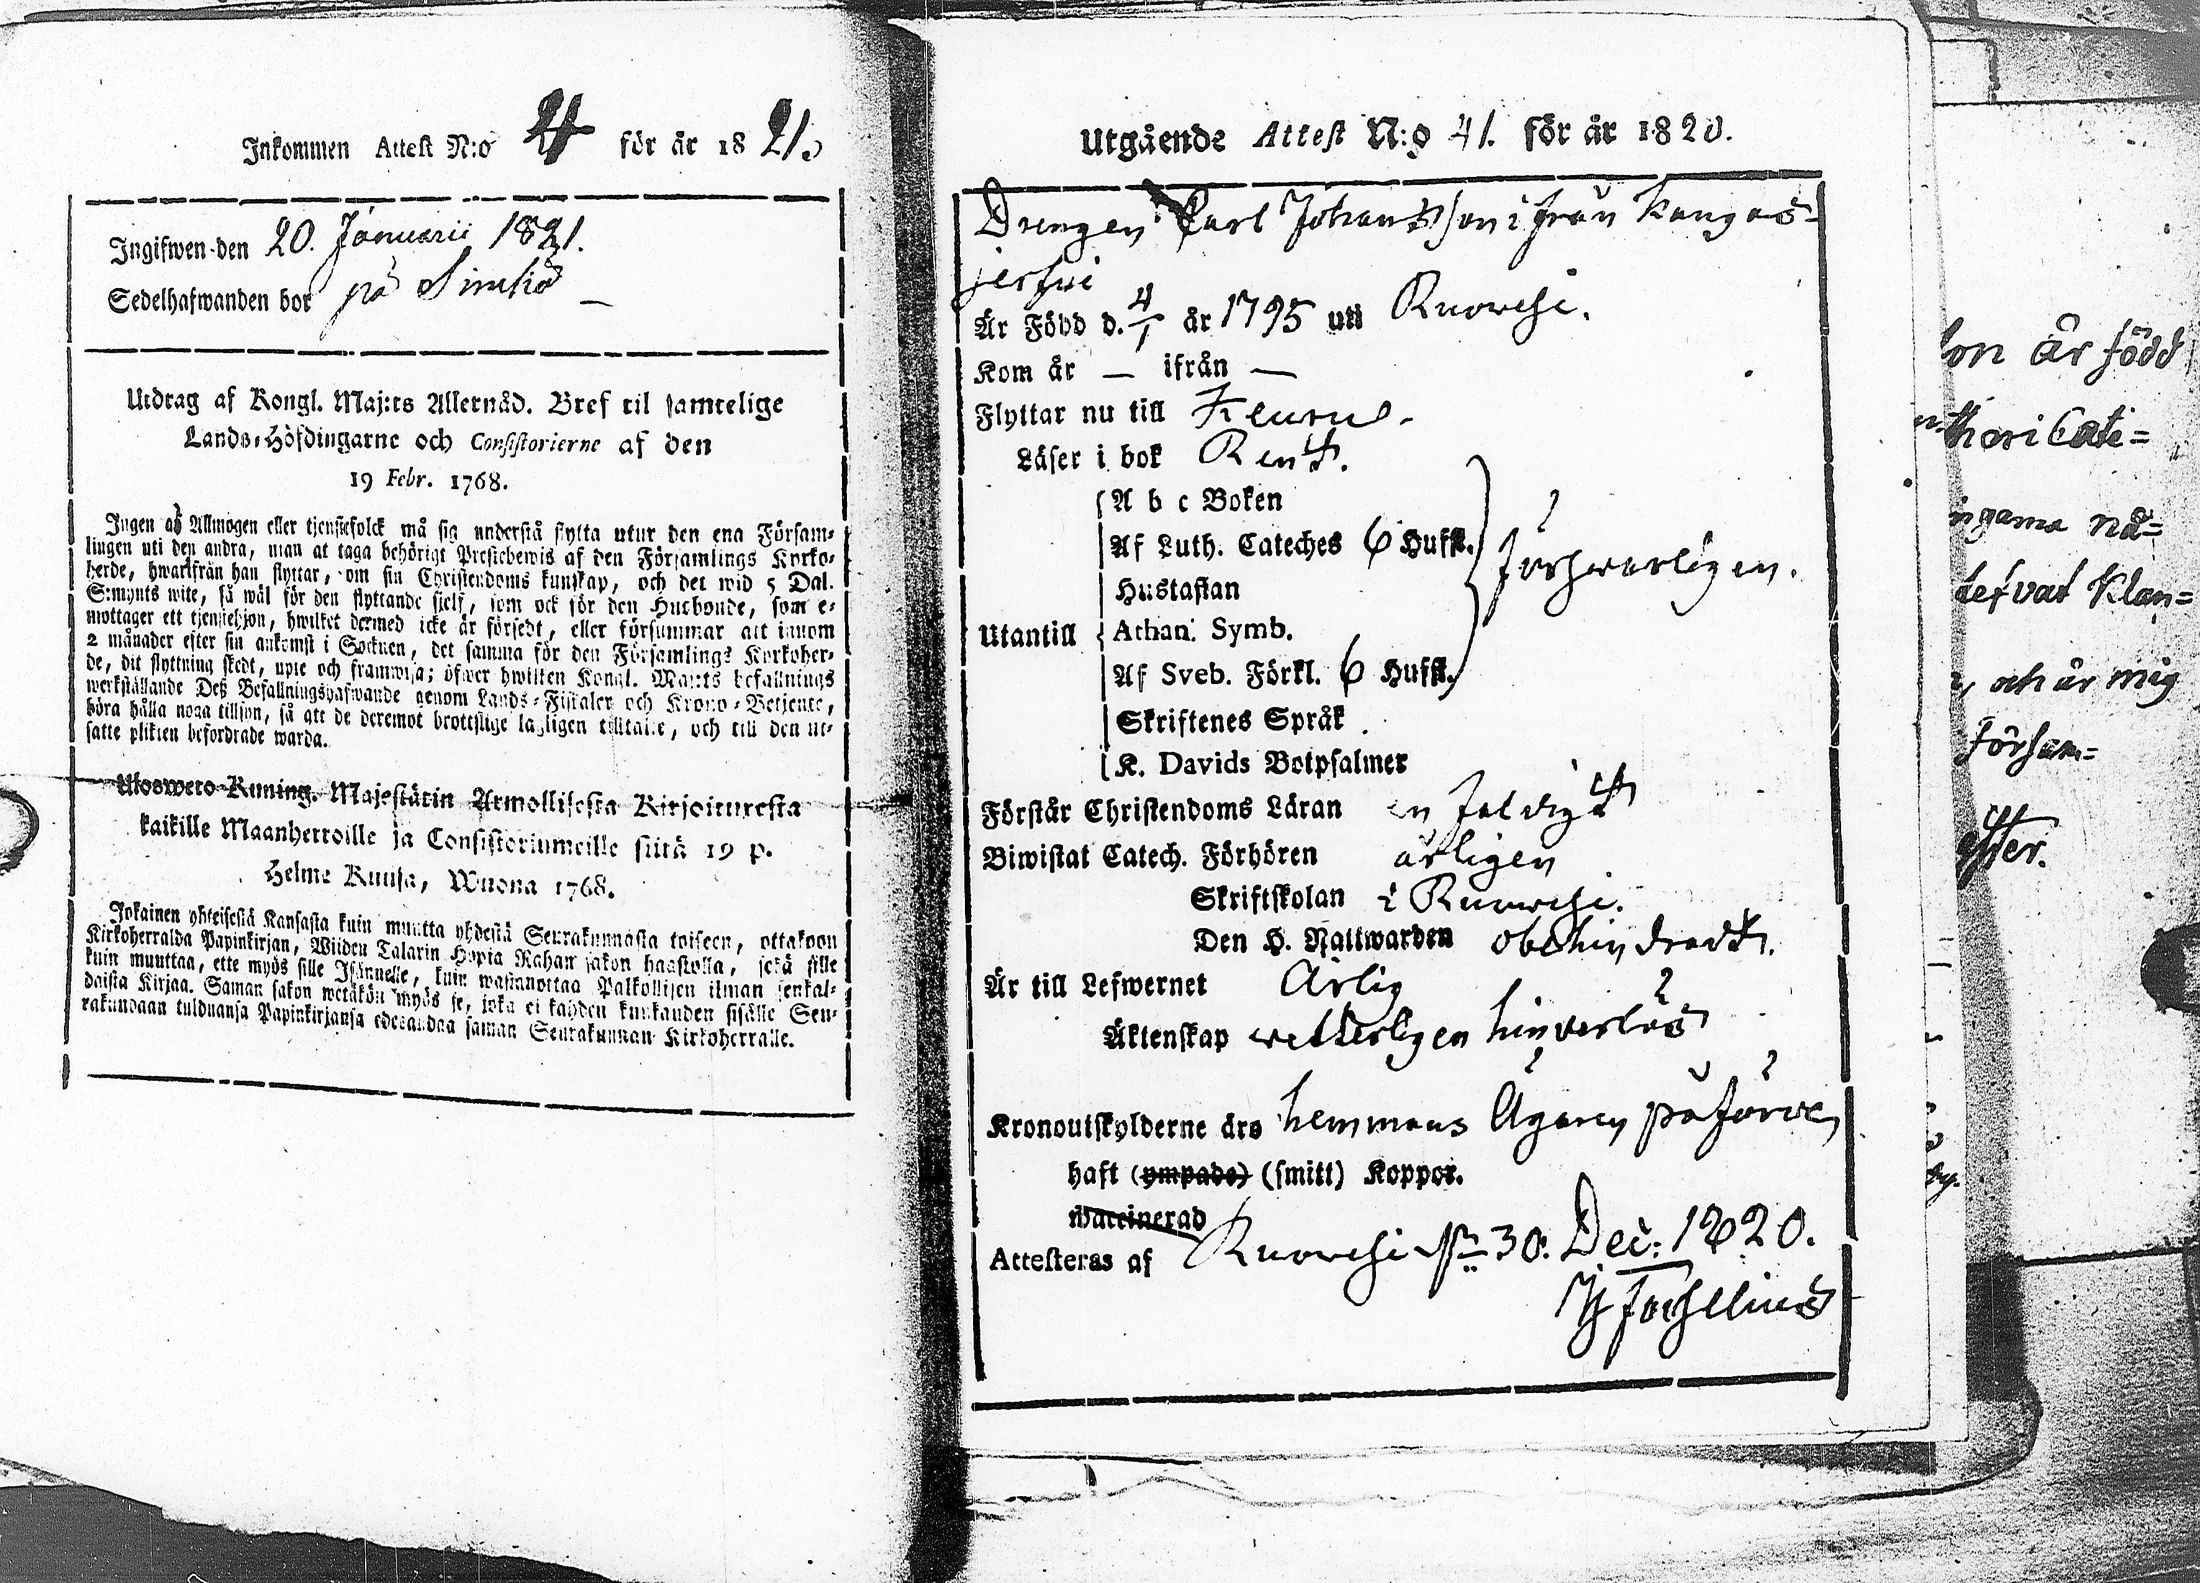 Inkommen Attest N:o 4 för år 1821.
Ingifwen den 20. Januarii 1821.
Sedelhafwanden bor på Simhö
Utdrag af Kongl. Maj:ts Allernåd. Bref til samtelige
Lands-Höfdingarne och Consistorierne af den
19 Febr. 1768.
Ingen af Allmogen eller tjenstefolck må sig understå flytta utur den ena Försam-
lingen uti den andra, utan at taga behörigt Prestebewis af den Församlings Kyrko-
herde, hwarifrån han flyttar, om sin Christendoms kunskap, och det wid 5 Dal.
S:mynts wite, så wäl för den flyttande sjelf, som ock för den Husbonde, som e-
mottager ett tjenstehjon, hwilket dermed icke är försedt, eller försummar att innom
2 månader efter sin ankomst i Socknen, det samma för den Församlings Kyrkoher-
de, dit flyttning skedt, upte och framwisa; öfwer hwilken Kongl. Maj:ts befallnings
werkställande Deß Befallningshafwande genom Lands-Fiskaler och Krono-Betjente,
böra hålla noga tillsyn, så att de deremot brottslige lagligen tilltalte, och till den ut-
satte plikten befordrade warda.
Ulosweto Kuning. Majestätin Armollisesta Kirjoituxesta
kaikille Maanherroille ja Consistoriumeille siitä 19 p.
Helme Kuusa, Wuona 1768.
Jokainen yhteisestä Kansasta kuin muutta yhdestä Seurakunnasta toiseen, ottakoon
Kirkoherralda Papinkirjan, Wiiden Talarin Hopia Rahan sakon haastolla, sekä sille
kuin muuttaa, ette myös sille Isännelle, kuin wastanottaa Palkollisen ilman senkal-
daista Kirjaa. Saman sakon wetäkön myös se, joka ei kahden kuukauden sisälle Seu-
rakundaan tulduansa Papinkirjansa edesandaa saman Seurakunnan Kirkoherralle.
Utgående Attest N:o 41. för år 1820.
Drengen Carl Johansson ifrån Kangas-
jerfwi
Är Född d. 4/1 år 1795 uti Ruowesi.
Kom år — ifrån —
Flyttar nu till Keuru.
Läser i bok Rent.
A b c Boken
Af Luth. Cateches 6 Hufst.
Hustaflan
försvarligen.
Utantill Athan. Symb.
Af Sveb. Förkl. 6 Hufst.
Skriftenes Språk
K. Davids Botpsalmer
Förstår Christendoms Läran enfaldigt
Biwistat Catech. Förhören årligen
Skriftskolan i Ruowesi.
Den H. Nattwarden obehindradt.
Är till Lefwernet Ärlig
Äktenskap wetterligen hinderlös
Kronoutskylderne äro hemmans Ägaren påförde
haft (ympade) (smitt) Koppor.
Waccinerad
Attesteras af Ruowesi 30. Dec: 1820.
Forsellius
son är född
theri Cate=
ingarna nå=
lefvat klan=
och är mig
försam=
efter.